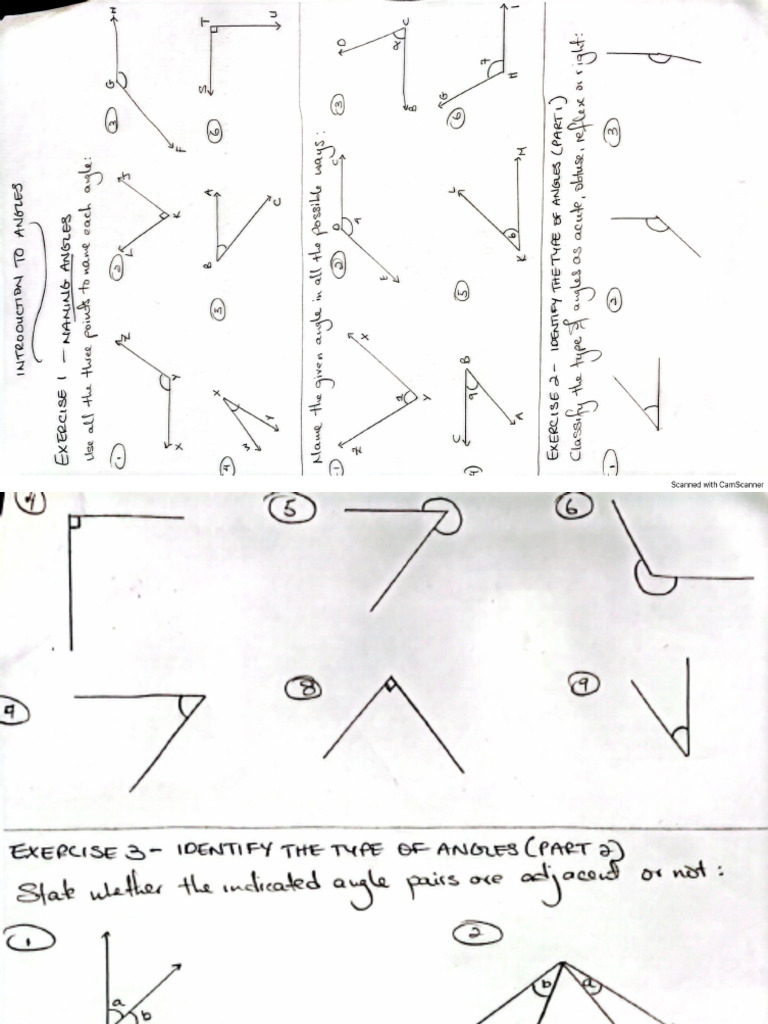 INTRODUCTION TO ANGLES
EXERCISE 1 - NAMING ANGLES
Use all the three points to name each angle:
1
X
Y
Z
2
L
K
J
3
F
G
H
4
X
Y
3
B
A
C
6
S
T
U
Name the given angle in all the possible ways:
1
Z
Y
X
2
D
C
3
B
C
D
4)
C
B
A
5
K
L
M
6
6
G
H
I
7
EXERCISE 2 - IDENTIFY THE TYPE OF ANGLES (PART 1)
Classify the type of angles as acute, obtuse, reflex or right:
1
2
3
Scanned with CamScanner
4
5
6
8
9
EXERCISE 3 - IDENTIFY THE TYPE OF ANGLES (PART 2)
State whether the indicated angle pairs are adjacent or not:
1
a
b
2
b
a